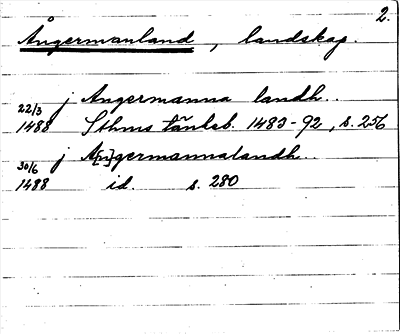 2.
Ångermanland, landskap.
22/3 j Angermanna landh..
1488 Sthms tänkeb. 1483-92, s. 256
30/6 j A[n]germannalandh..
1488 id. s. 280